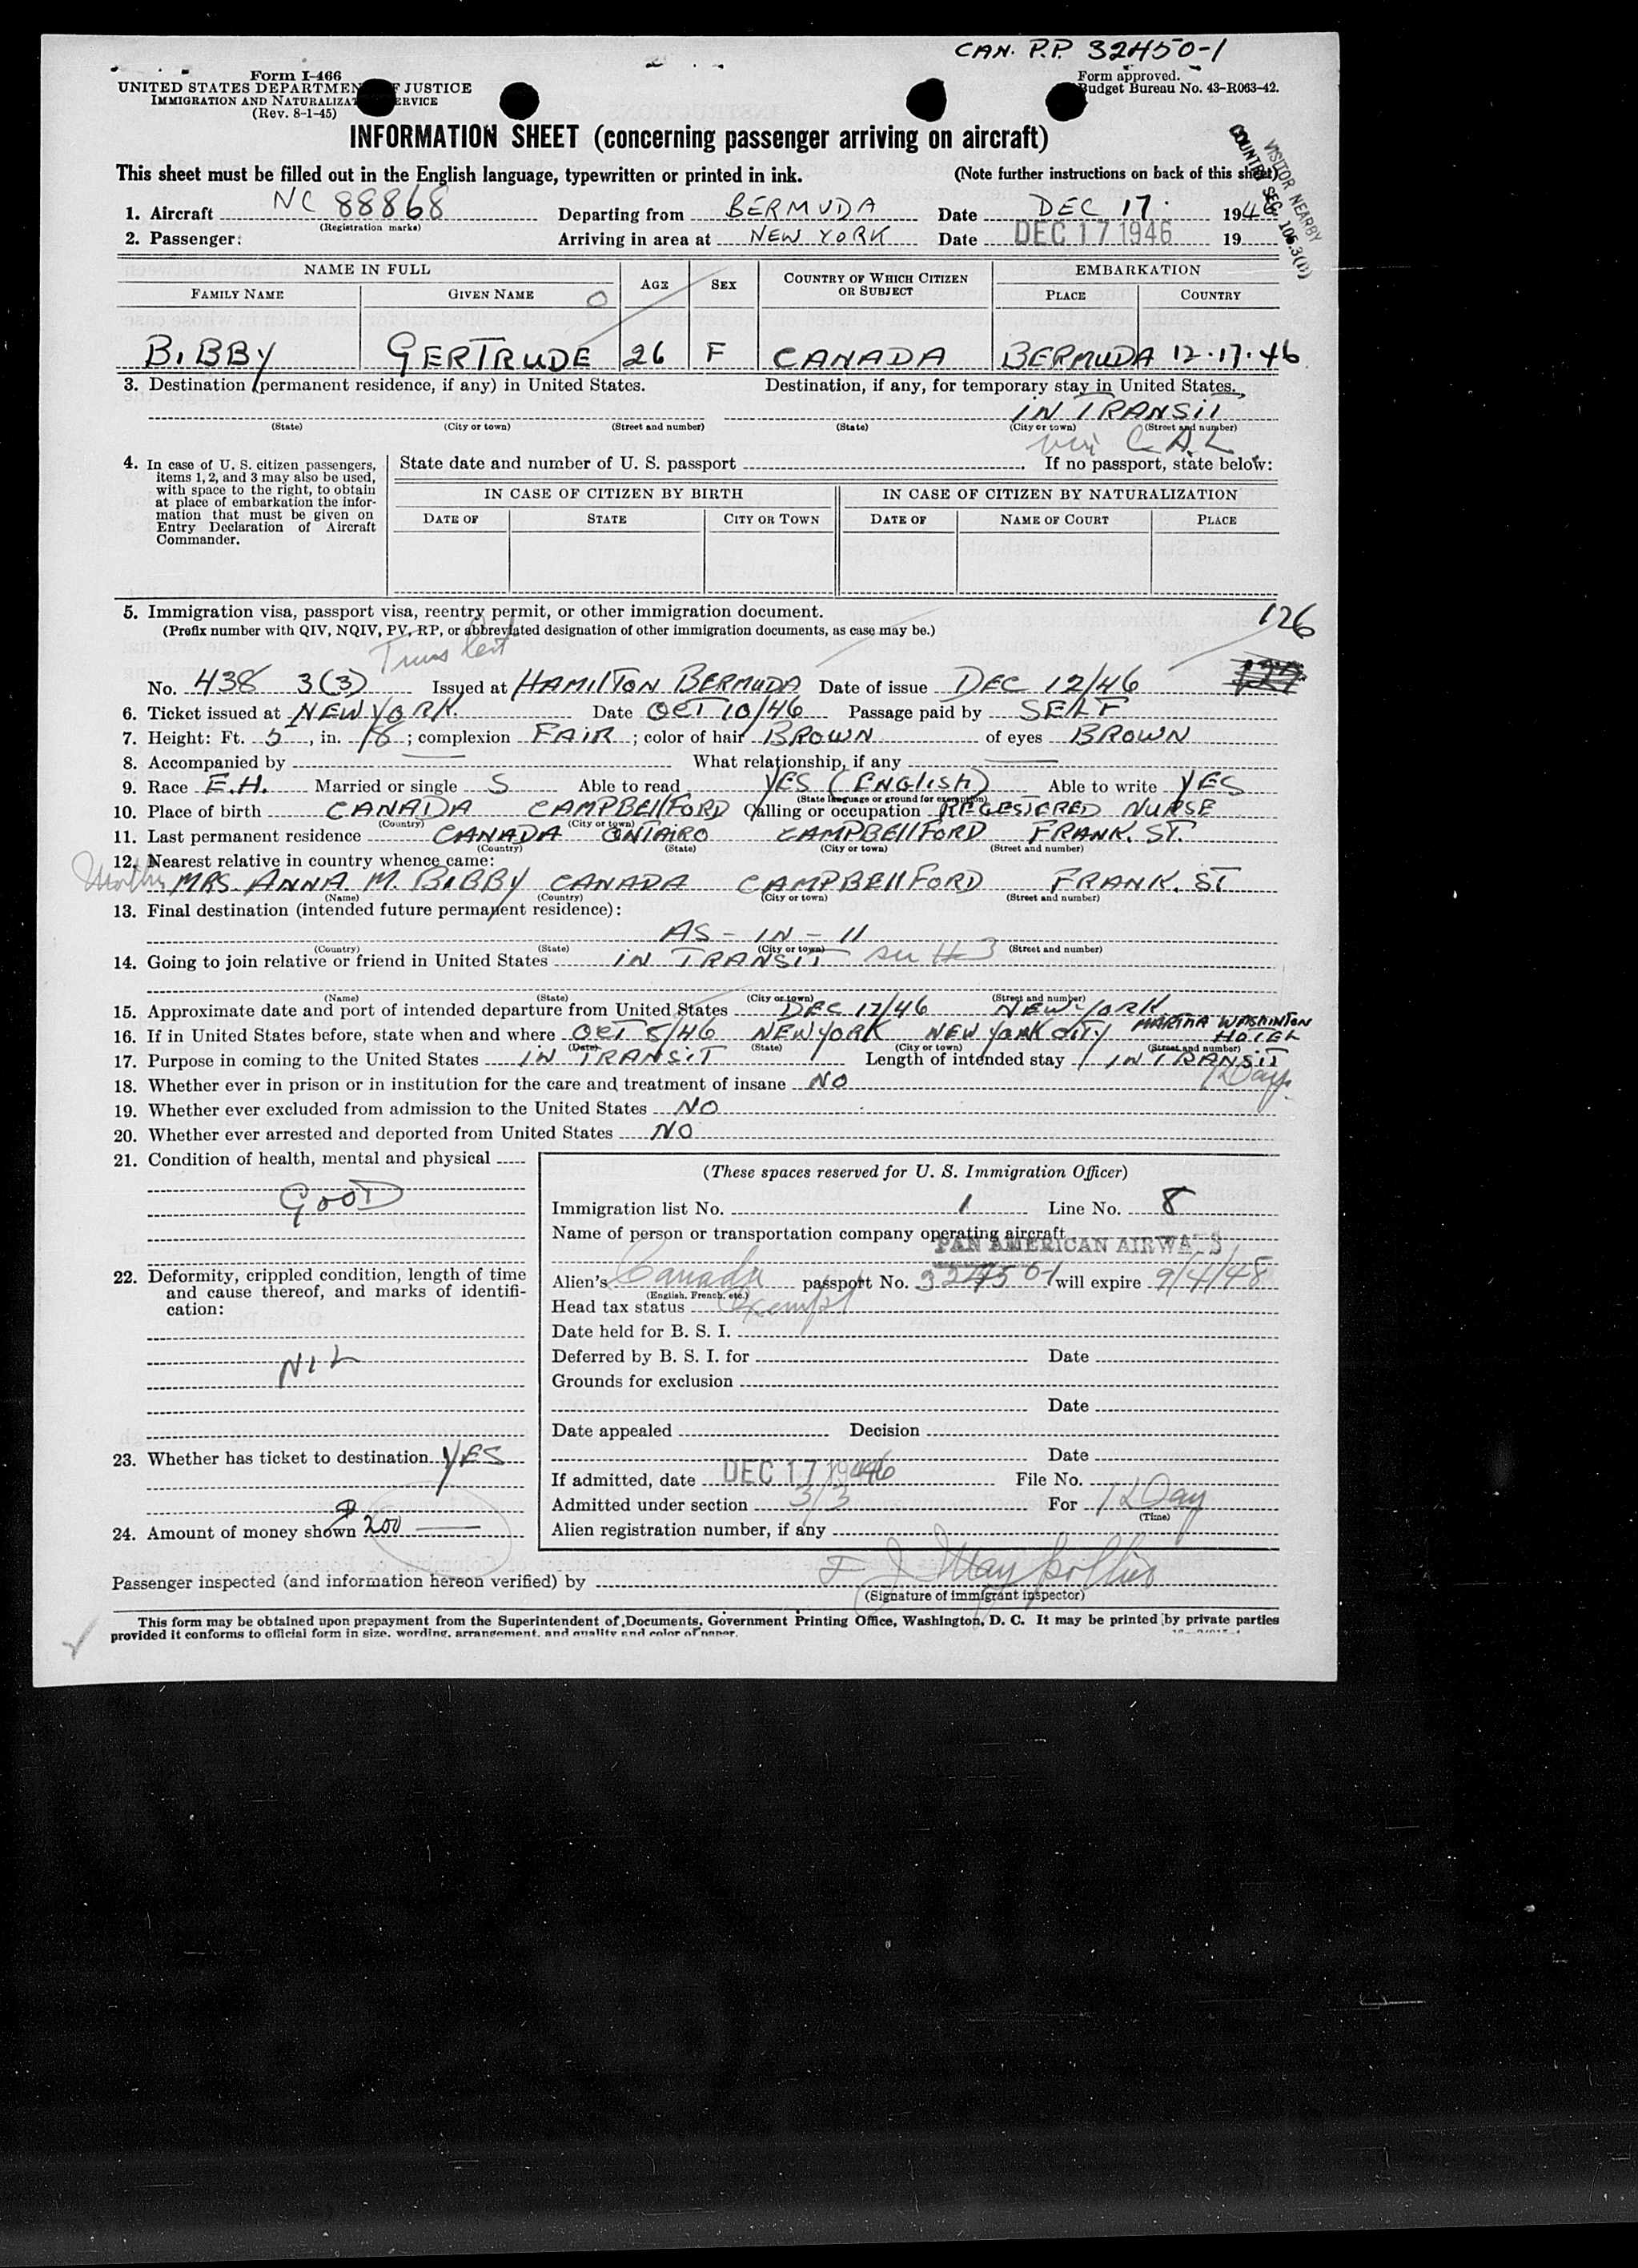 CAN. P.P. 32450-1
Form I-466
UNITED STATES DEPARTMENT OF JUSTICE
IMMIGRATION AND NATURALIZATION SERVICE
(Rev. 8-1-45)
Form approved.
Budget Bureau No. 43-R063-42.
INFORMATION SHEET (concerning passenger arriving on aircraft)
This sheet must be filled out in the English language, typewritten or printed in ink.
(Note further instructions on back of this sheet)
VISITOR NEARBY
COUNTRY SEC. 105.3(b)
1. Aircraft NC 88868 Departing from BERMUDA Date DEC 17. 1946
(Registration marks)
2. Passenger: Arriving in area at NEW YORK Date DEC 17 1946 19
NAME IN FULL AGE SEX COUNTRY OF WHICH CITIZEN OR SUBJECT EMBARKATION
FAMILY NAME GIVEN NAME PLACE COUNTRY
BIBBY GERTRUDE 26 F CANADA BERMUDA 12.17.46
3. Destination (permanent residence, if any) in United States. Destination, if any, for temporary stay in United States.
IN TRANSIT
(State) (City or town) (Street and number) (State) (City or town) (Street and number)
C.A.L
4. In case of U. S. citizen passengers, items 1, 2, and 3 may also be used, with space to the right, to obtain at place of embarkation the information that must be given on Entry Declaration of Aircraft Commander.
State date and number of U. S. passport If no passport, state below:
IN CASE OF CITIZEN BY BIRTH IN CASE OF CITIZEN BY NATURALIZATION
DATE OF STATE CITY OR TOWN DATE OF NAME OF COURT PLACE
5. Immigration visa, passport visa, reentry permit, or other immigration document.
126
(Prefix number with QIV, NQIV, PV, RP, or abbreviated designation of other immigration documents, as case may be.)
No. 438 3(3) Issued at HAMILTON BERMUDA Date of issue DEC 12/46
6. Ticket issued at NEW YORK. Date OCT 10/46 Passage paid by SELF
7. Height: Ft. 5, in. ; complexion FAIR; color of hair BROWN of eyes BROWN
8. Accompanied by What relationship, if any
9. Race E.H. Married or single S Able to read YES (ENGLISH) Able to write YES
(State language or ground for exemption)
10. Place of birth CANADA CAMPBELLFORD Calling or occupation REGESICRED NURSE
(Country) (City or town)
11. Last permanent residence CANADA ONTAIRO CAMPBELLFORD FRANK. ST.
(Country) (State) (City or town) (Street and number)
12. Nearest relative in country whence came:
Mother MRS. ANNA M. BIBBY CANADA CAMPBELLFORD FRANK. ST
(Name) (Country) (City or town) (Street and number)
13. Final destination (intended future permanent residence):
AS - IN - 11
(Country) (State) (City or town) (Street and number)
14. Going to join relative or friend in United States IN TRANSIT
(Name) (State) (City or town) (Street and number)
15. Approximate date and port of intended departure from United States DEC 17/46 NEW-YORK
16. If in United States before, state when and where OCT 5/46 NEW YORK NEW YORK CITY MARTHA WASHINTON HOTEL
(Date) (State) (City or town) (Street and number)
17. Purpose in coming to the United States IN TRANSIT Length of intended stay IN TRANSIT
18. Whether ever in prison or in institution for the care and treatment of insane NO
19. Whether ever excluded from admission to the United States NO
20. Whether ever arrested and deported from United States NO
21. Condition of health, mental and physical
GOOD
22. Deformity, crippled condition, length of time and cause thereof, and marks of identification:
NIL
23. Whether has ticket to destination YES
24. Amount of money shown 200
(These spaces reserved for U. S. Immigration Officer)
Immigration list No. 1 Line No. 8
Name of person or transportation company operating aircraft
PAN AMERICAN AIRWAYS
Alien's Canada passport No. will expire 9/4/48
(English, French, etc.)
Head tax status Exempt
Date held for B. S. I.
Deferred by B. S. I. for Date
Grounds for exclusion
Date
Date appealed Decision
Date
If admitted, date DEC 17 1946 File No.
Admitted under section 3/3 For Day
(Time)
Alien registration number, if any
Passenger inspected (and information hereon verified) by
(Signature of immigrant inspector)
This form may be obtained upon prepayment from the Superintendent of Documents, Government Printing Office, Washington, D. C. It may be printed by private parties
provided it conforms to official form in size, wording, arrangement, and quality and color of paper.